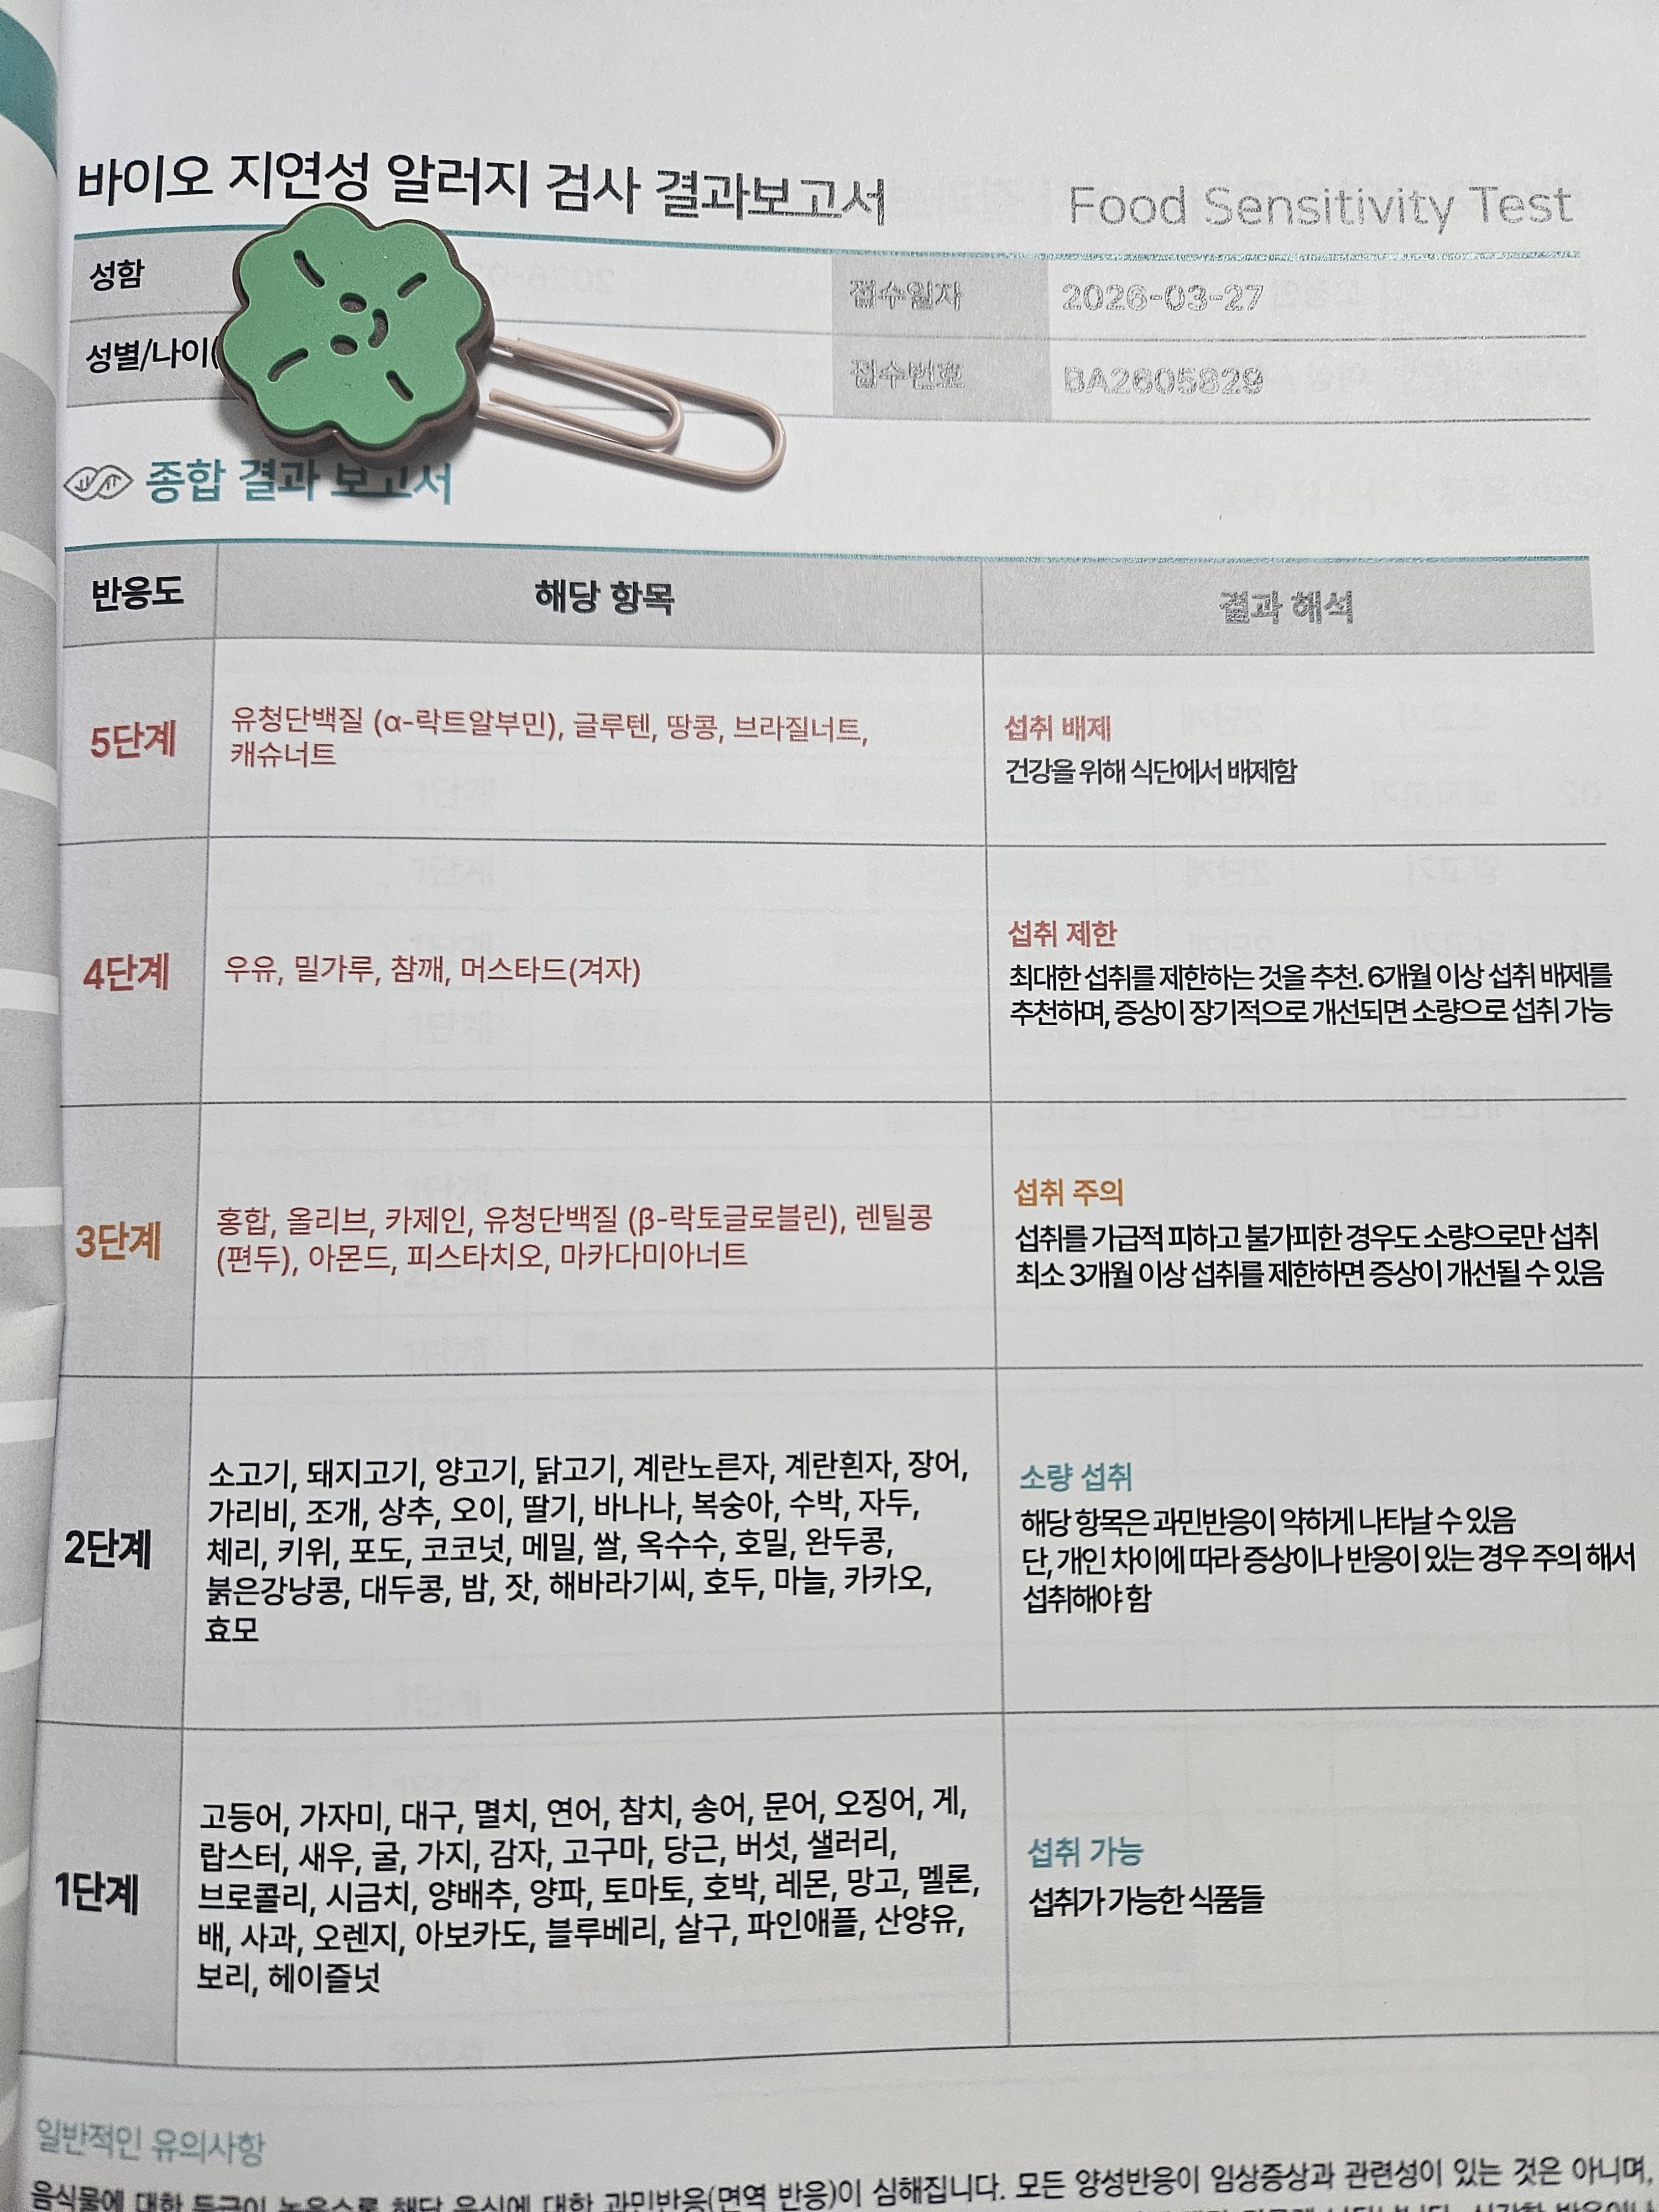 바이오 지연성 알러지 검사 결과보고서
Food Sensitivity Test
성함
접수일자 2026-03-27
성별/나이(
접수번호 BA2605829
종합 결과 보고서
반응도 해당 항목 결과 해석
5단계
유청단백질 (α-락트알부민), 글루텐, 땅콩, 브라질너트,
캐슈너트
섭취 배제
건강을 위해 식단에서 배제함
4단계
우유, 밀가루, 참깨, 머스타드(겨자)
섭취 제한
최대한 섭취를 제한하는 것을 추천. 6개월 이상 섭취 배제를
추천하며, 증상이 장기적으로 개선되면 소량으로 섭취 가능
3단계
홍합, 올리브, 카제인, 유청단백질 (β-락토글로블린), 렌틸콩
(편두), 아몬드, 피스타치오, 마카다미아너트
섭취 주의
섭취를 가급적 피하고 불가피한 경우도 소량으로만 섭취
최소 3개월 이상 섭취를 제한하면 증상이 개선될 수 있음
2단계
소고기, 돼지고기, 양고기, 닭고기, 계란노른자, 계란흰자, 장어,
가리비, 조개, 상추, 오이, 딸기, 바나나, 복숭아, 수박, 자두,
체리, 키위, 포도, 코코넛, 메밀, 쌀, 옥수수, 호밀, 완두콩,
붉은강낭콩, 대두콩, 밤, 잣, 해바라기씨, 호두, 마늘, 카카오,
효모
소량 섭취
해당 항목은 과민반응이 약하게 나타날 수 있음
단, 개인 차이에 따라 증상이나 반응이 있는 경우 주의 해서
섭취해야 함
1단계
고등어, 가자미, 대구, 멸치, 연어, 참치, 송어, 문어, 오징어, 게,
랍스터, 새우, 굴, 가지, 감자, 고구마, 당근, 버섯, 샐러리,
브로콜리, 시금치, 양배추, 양파, 토마토, 호박, 레몬, 망고, 멜론,
배, 사과, 오렌지, 아보카도, 블루베리, 살구, 파인애플, 산양유,
보리, 헤이즐넛
섭취 가능
섭취가 가능한 식품들
일반적인 유의사항
음식물에 대한 등급이 높을수록 해당 음식에 대한 과민반응(면역 반응)이 심해집니다. 모든 양성반응이 임상증상과 관련성이 있는 것은 아니며,